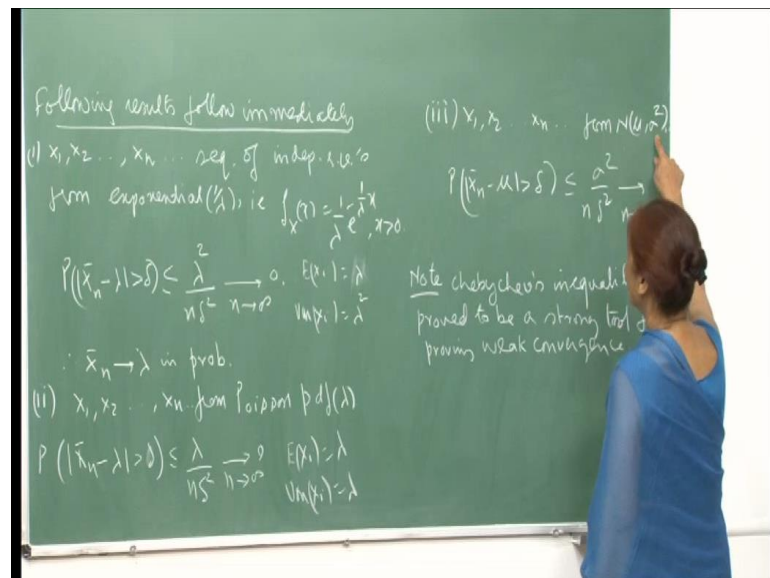 Following results follow immediately
(i) X₁, X₂ ..., Xₙ ... seq. of indep. r.v.'s
from exponential (1/λ), ie f_X(x) = 1/λ e^{-1/λ x}, x>0
P(|X̄ₙ - λ| > δ) ≤ λ²/nδ² → 0. n→∞ E(Xᵢ) = λ
Var(Xᵢ) = λ²
∴ X̄ₙ → λ in prob.
(ii) X₁, X₂ ..., Xₙ .. from Poisson pdf(λ)
P(|X̄ₙ - λ| > δ) ≤ λ/nδ² → 0 n→∞ E(Xᵢ) = λ
Var(Xᵢ) = λ
(iii) X₁, X₂ ... Xₙ ... from N(μ, a²)
P(|X̄ₙ - μ| > δ) ≤ a²/nδ² →
Note Chebychev's
proved to be a strong tool
proving weak convergence